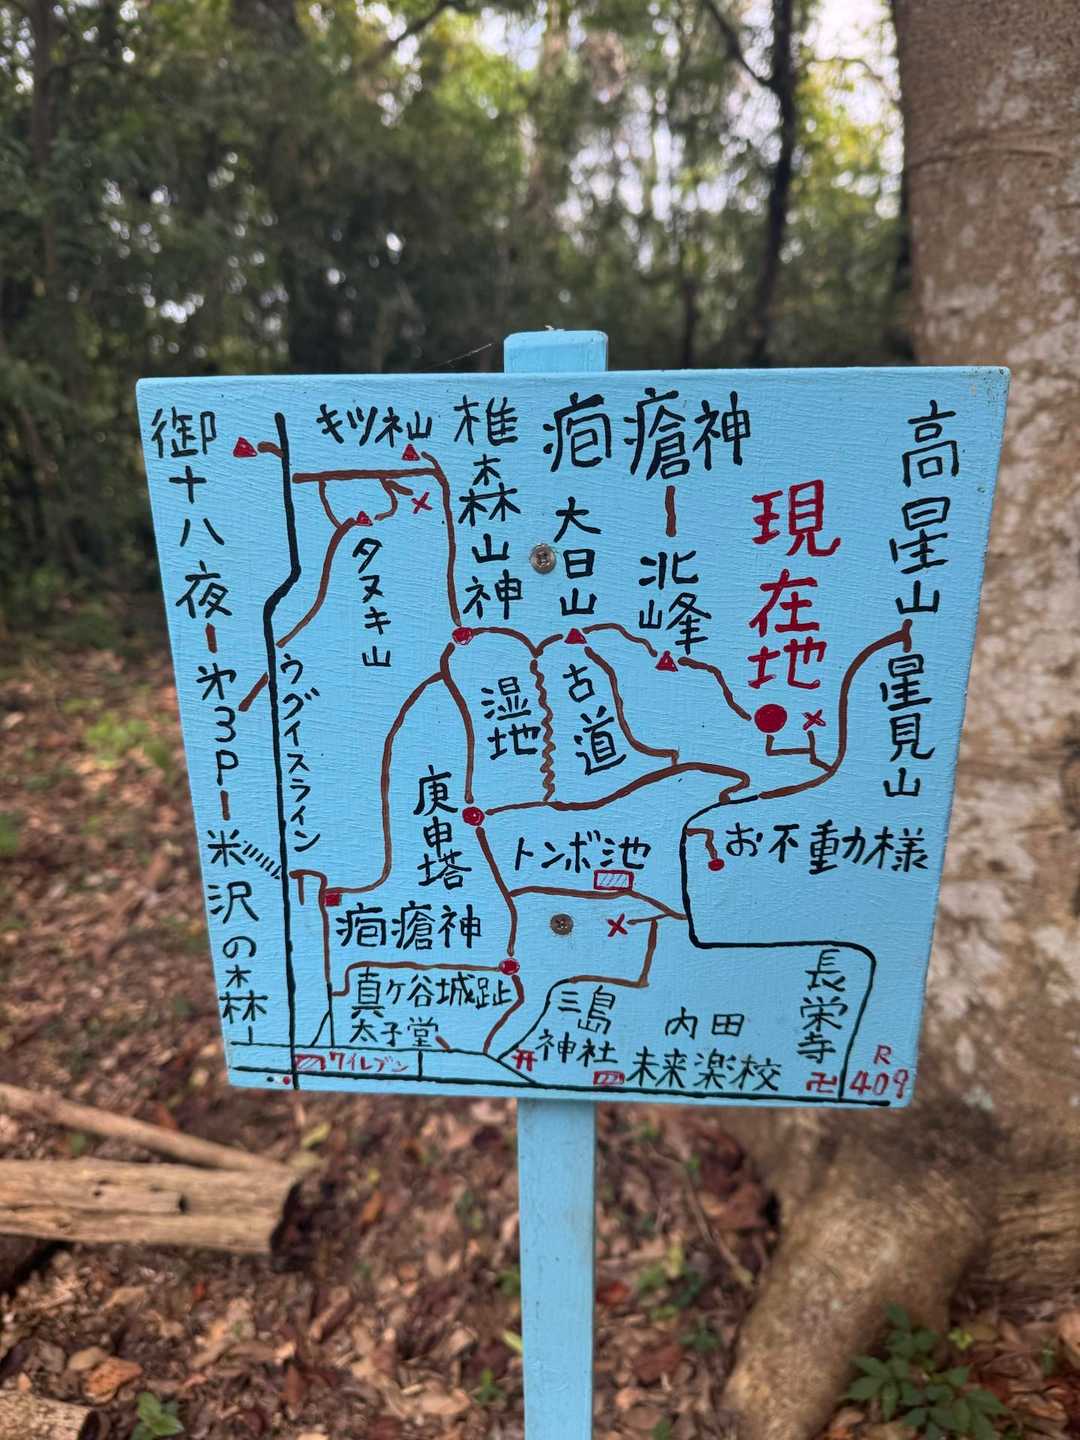 御十八夜ー米沢の森ー
㐧3P
キツ社山
椎木森山神
疱瘡神ー北峰
大日山
現在地
高星山ー星見山
タヌキ山
ウグイスライン
湿地
古道
庚申塔
トンボ池
お不動様
疱瘡神
真ケ谷城趾
太子堂
三島神社
内田
未来楽校
長栄寺
R
409